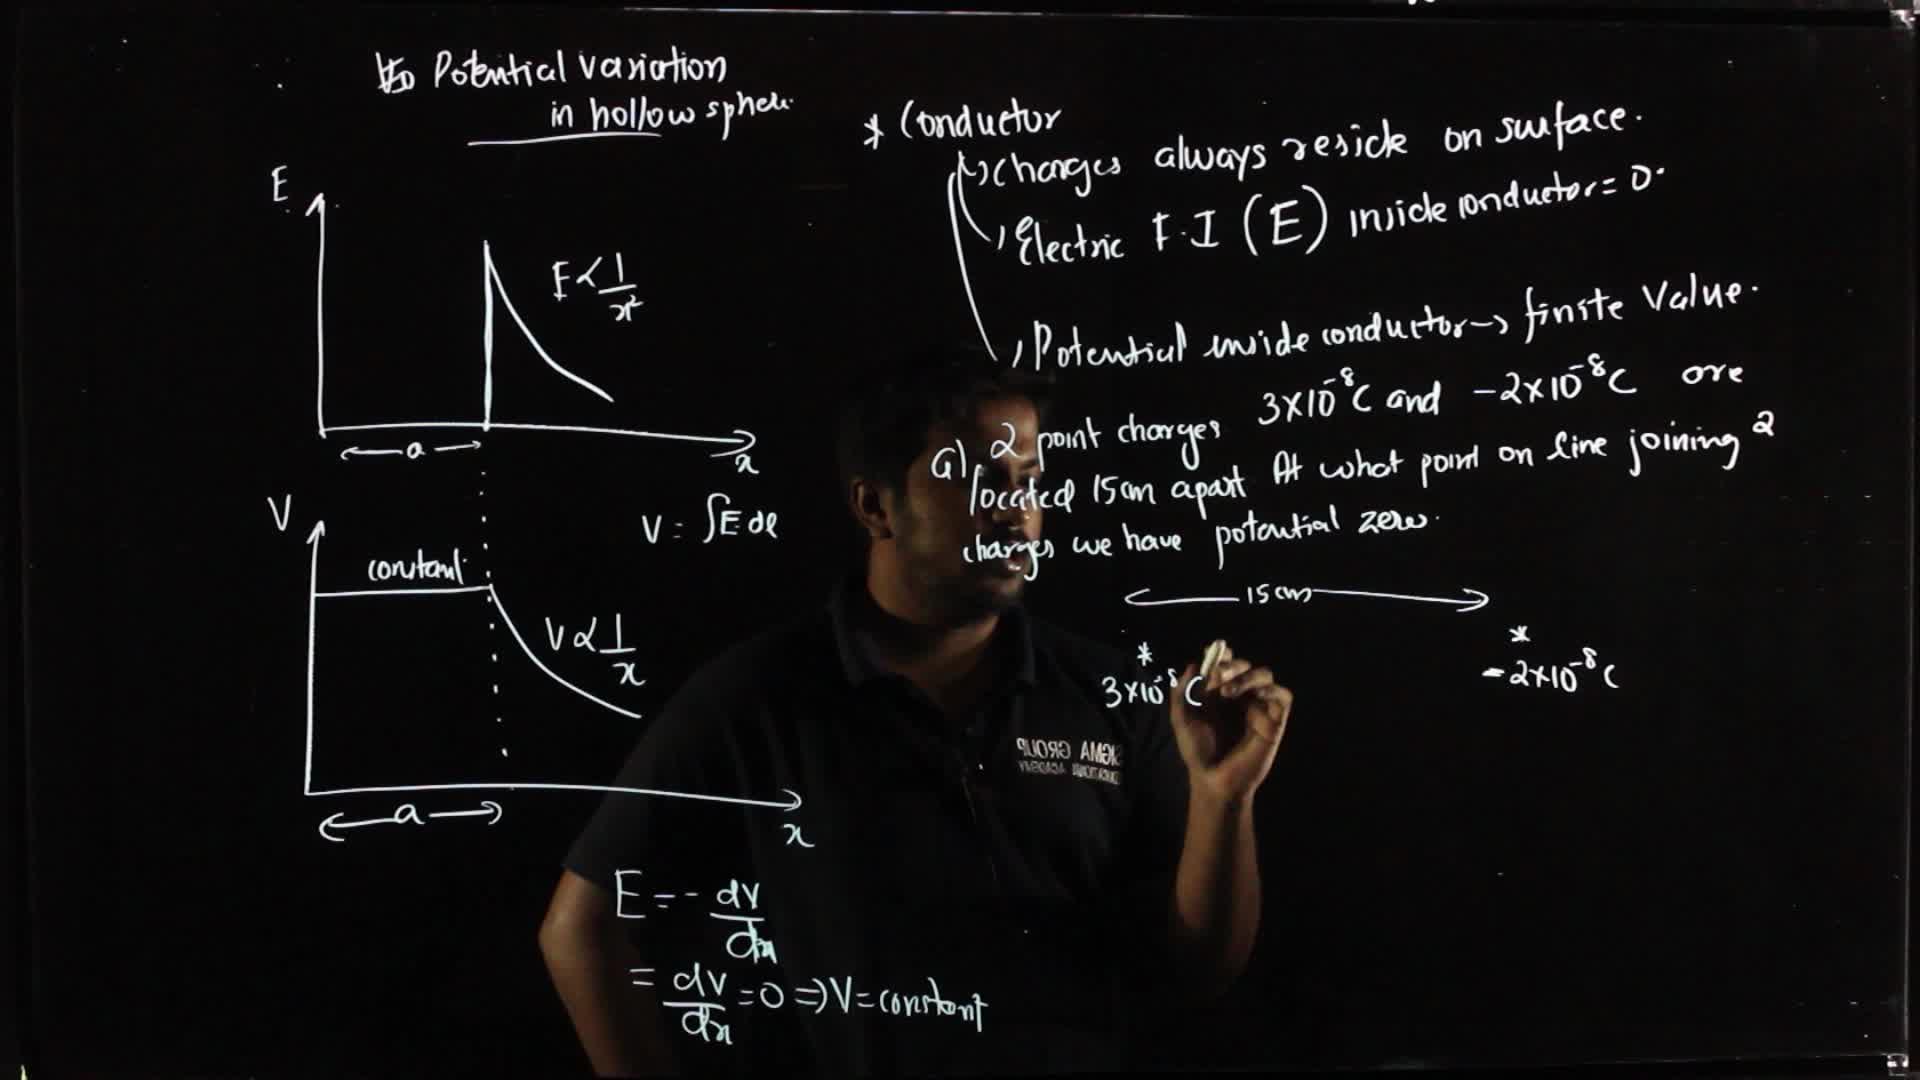 Potential variation
in hollow sphere
E
E ∝ 1/x²
a
x
V
V = ∫E dl
constant
V ∝ 1/x
a
x
E = - dV/dx
= dV/dx = 0 ⇒ V = constant
* Conductor
charges always reside on surface.
Electric F.I (E) inside conductor = 0.
Potential inside conductor → finite value.
Q) 2 point charges 3×10⁻⁸C and -2×10⁻⁸C are
located 15cm apart At what point on line joining 2
charges we have potential zero.
15cm
* *
3×10⁻⁸C -2×10⁻⁸C
SIGMA GROUP
ACADEMY